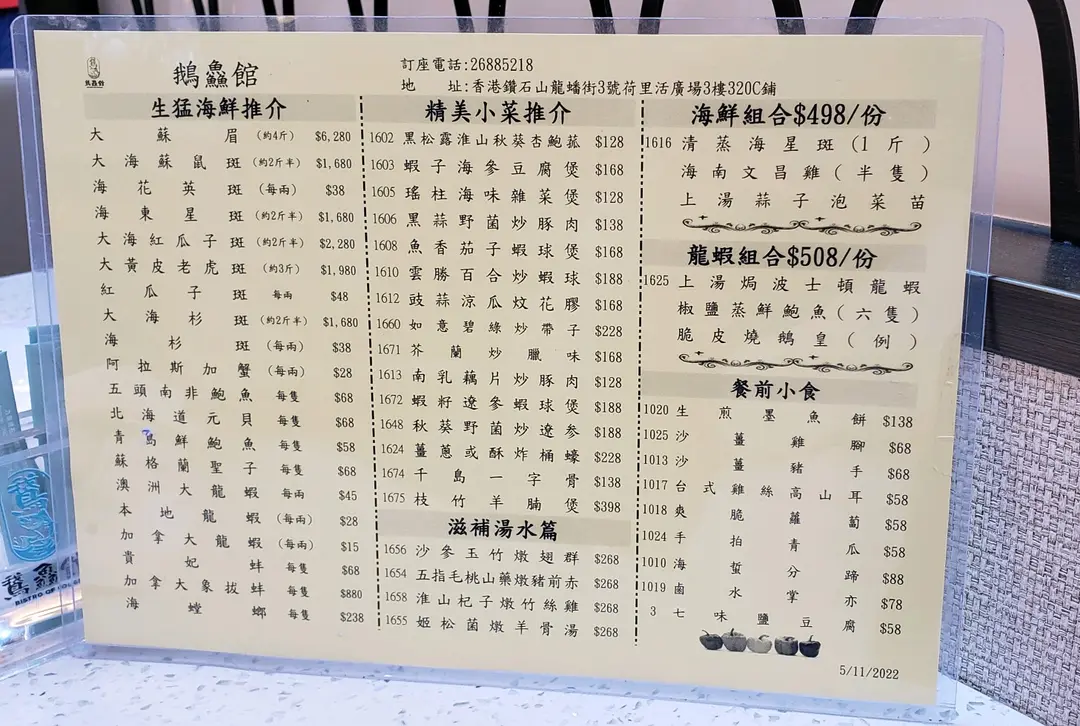 鵝鱻館
訂座電話:26885218
地 址:香港鑽石山龍蟠街3號荷里活廣場3樓320C鋪
生猛海鮮推介
大蘇眉 (約4斤) $6,280
大海蘇鼠斑 (約2斤半) $1,680
海花英斑 (每兩) $38
海東星斑 (約2斤半) $1,680
大海紅瓜子斑 (約2斤半) $2,280
大黃皮老虎斑 (約3斤) $1,980
紅瓜子斑 每兩 $48
大海杉斑 (約2斤半) $1,680
海杉斑 (每兩) $38
阿拉斯加蟹 (每兩) $28
五頭南非鮑魚 每隻 $68
北海道元貝 每隻 $68
青島鮮鮑魚 每隻 $58
蘇格蘭聖子 每隻 $68
澳洲大龍蝦 每兩 $45
本地龍蝦 (每兩) $28
加拿大龍蝦 (每兩) $15
貴妃蚌 每隻 $68
加拿大象拔蚌 每隻 $880
海螳螂 每隻 $238
精美小菜推介
1602 黑松露淮山秋葵杏鮑菰 $128
1603 蝦子海參豆腐煲 $168
1605 瑤柱海味雜菜煲 $128
1606 黑蒜野菌炒豚肉 $138
1608 魚香茄子蝦球煲 $168
1610 雲勝百合炒蝦球 $188
1612 豉蒜涼瓜炆花膠 $168
1660 如意碧綠炒帶子 $228
1671 芥蘭炒臘味 $168
1613 南乳藕片炒豚肉 $128
1672 蝦籽遼參蝦球煲 $188
1648 秋葵野菌炒遼參 $188
1624 薑蔥或酥炸桶蠔 $228
1674 千島一字骨 $138
1675 枝竹羊腩煲 $398
滋補湯水篇
1656 沙參玉竹燉翅群 $268
1654 五指毛桃山藥燉豬前赤 $268
1658 淮山杞子燉竹絲雞 $268
1655 姬松菌燉羊骨湯 $268
海鮮組合$498/份
1616 清蒸海星斑(1斤)
海南文昌雞(半隻)
上湯蒜子泡菜苗
龍蝦組合$508/份
1625 上湯焗波士頓龍蝦
椒鹽蒸鮮鮑魚(六隻)
脆皮燒鵝皇(例)
餐前小食
1020 生煎墨魚餅 $138
1025 沙薑雞腳 $68
1013 沙薑豬手 $68
1017 台式雞絲高山耳 $58
1018 爽脆蘿蔔 $58
1024 手拍青瓜 $58
1010 海蜇分蹄 $88
1019 鹵水掌亦 $78
3 七味鹽豆腐 $58
5/11/2022